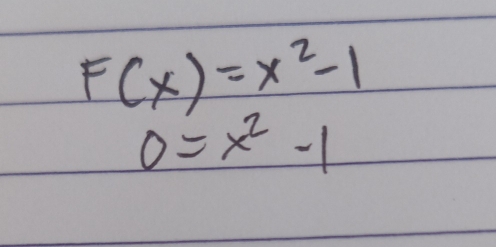 F(x) = x² - 1
0 = x² - 1